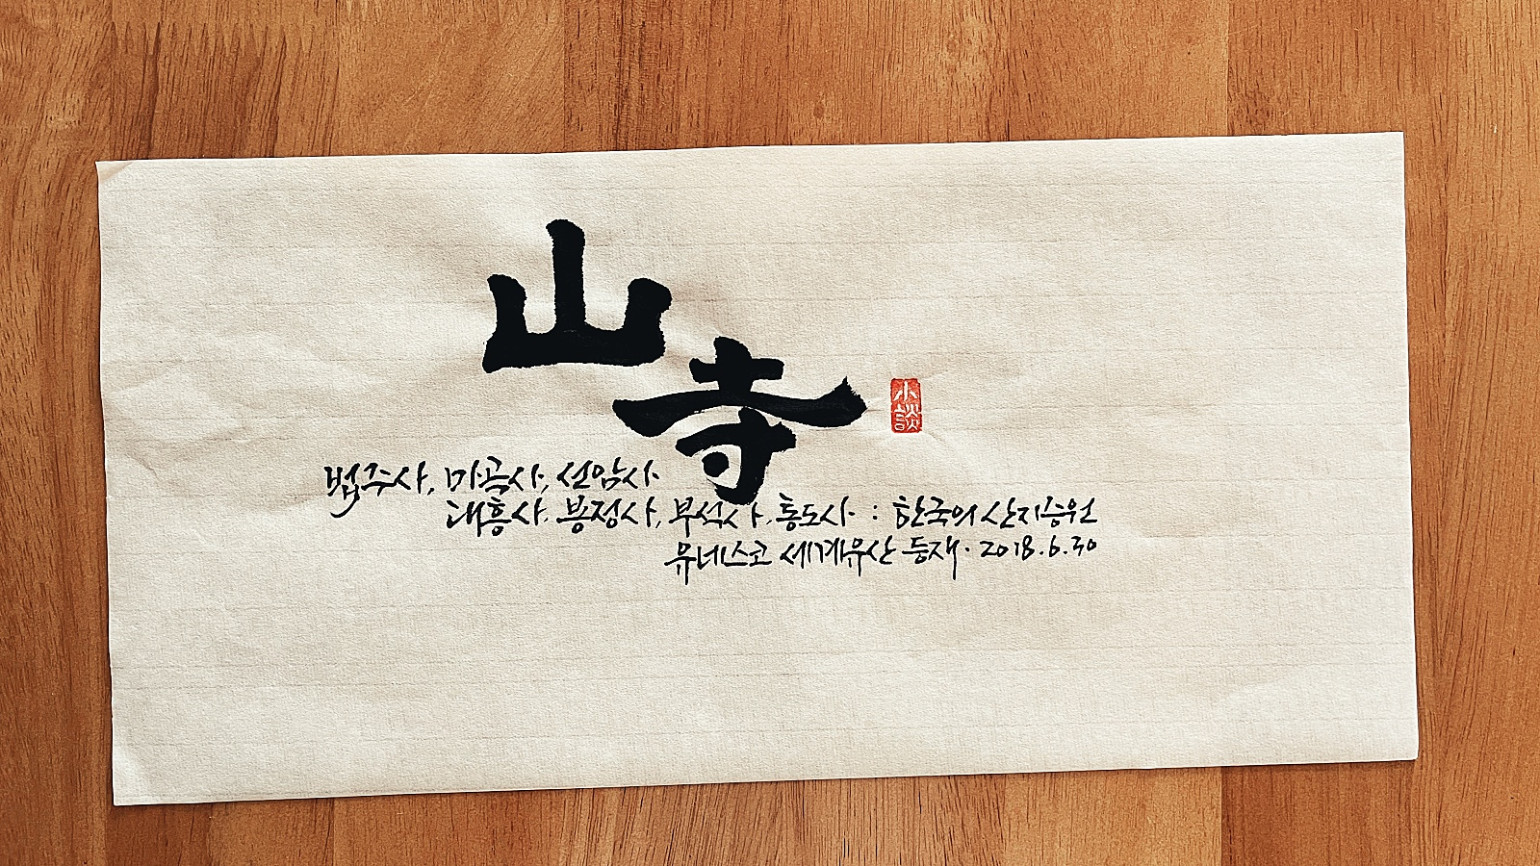 山
寺
小談
법주사, 마곡사, 선암사.
대흥사, 봉정사, 부석사, 통도사 : 한국의 산지승원
유네스코 세계유산 등재. 2018.6.30